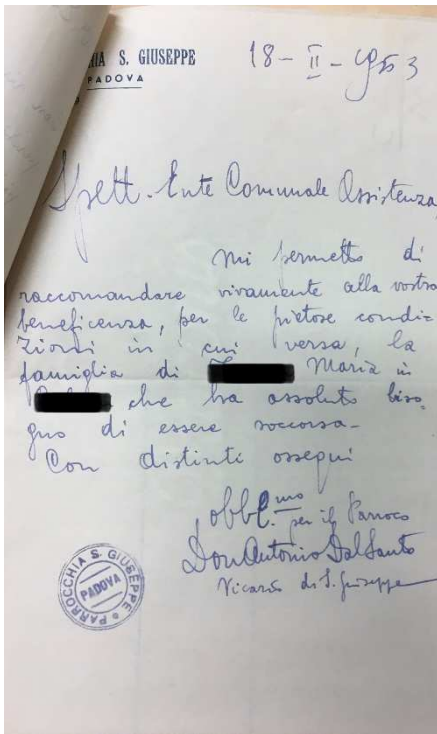 CHIA S. GIUSEPPE
PADOVA
18-II-1953
Spett. Ente Comunale Assistenza
Mi permetto di
raccomandare vivamente alla vostra
beneficenza, per le pietose condi=
zioni in cui versa, la
famiglia di Maria in
che ha asssoluto biso-
gno di essere soccorsa-
Con distinti ossequi
obbl.mo
per il Parroco
Don Antonio Dal Santo
Vicario di S. Giuseppe
PARROCCHIA S. GIUSEPPE
PADOVA